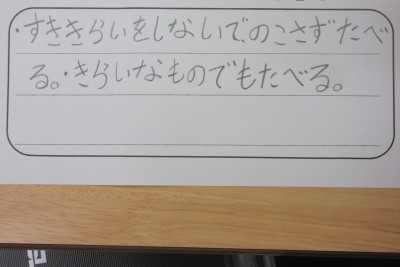 ・すききらいをしないで、のこさずたべ
る。・きらいなものでもたべる。